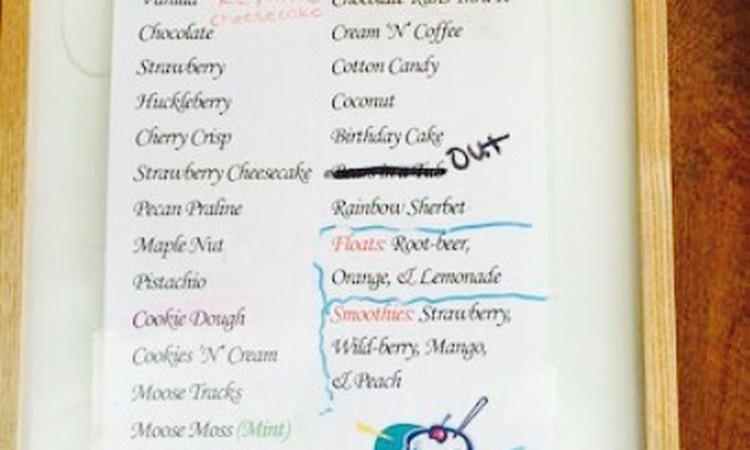 Vanilla
cheesecake
Chocolate
Strawberry
Huckleberry
Cherry Crisp
Strawberry Cheesecake
Pecan Praline
Maple Nut
Pistachio
Cookie Dough
Cookies 'N' Cream
Moose Tracks
Moose Moss (Mint)
Chocolate
Cream 'N' Coffee
Cotton Candy
Coconut
Birthday Cake
OUT
Rainbow Sherbet
Floats: Root-beer,
Orange, & Lemonade
Smoothies: Strawberry,
Wild-berry, Mango,
& Peach